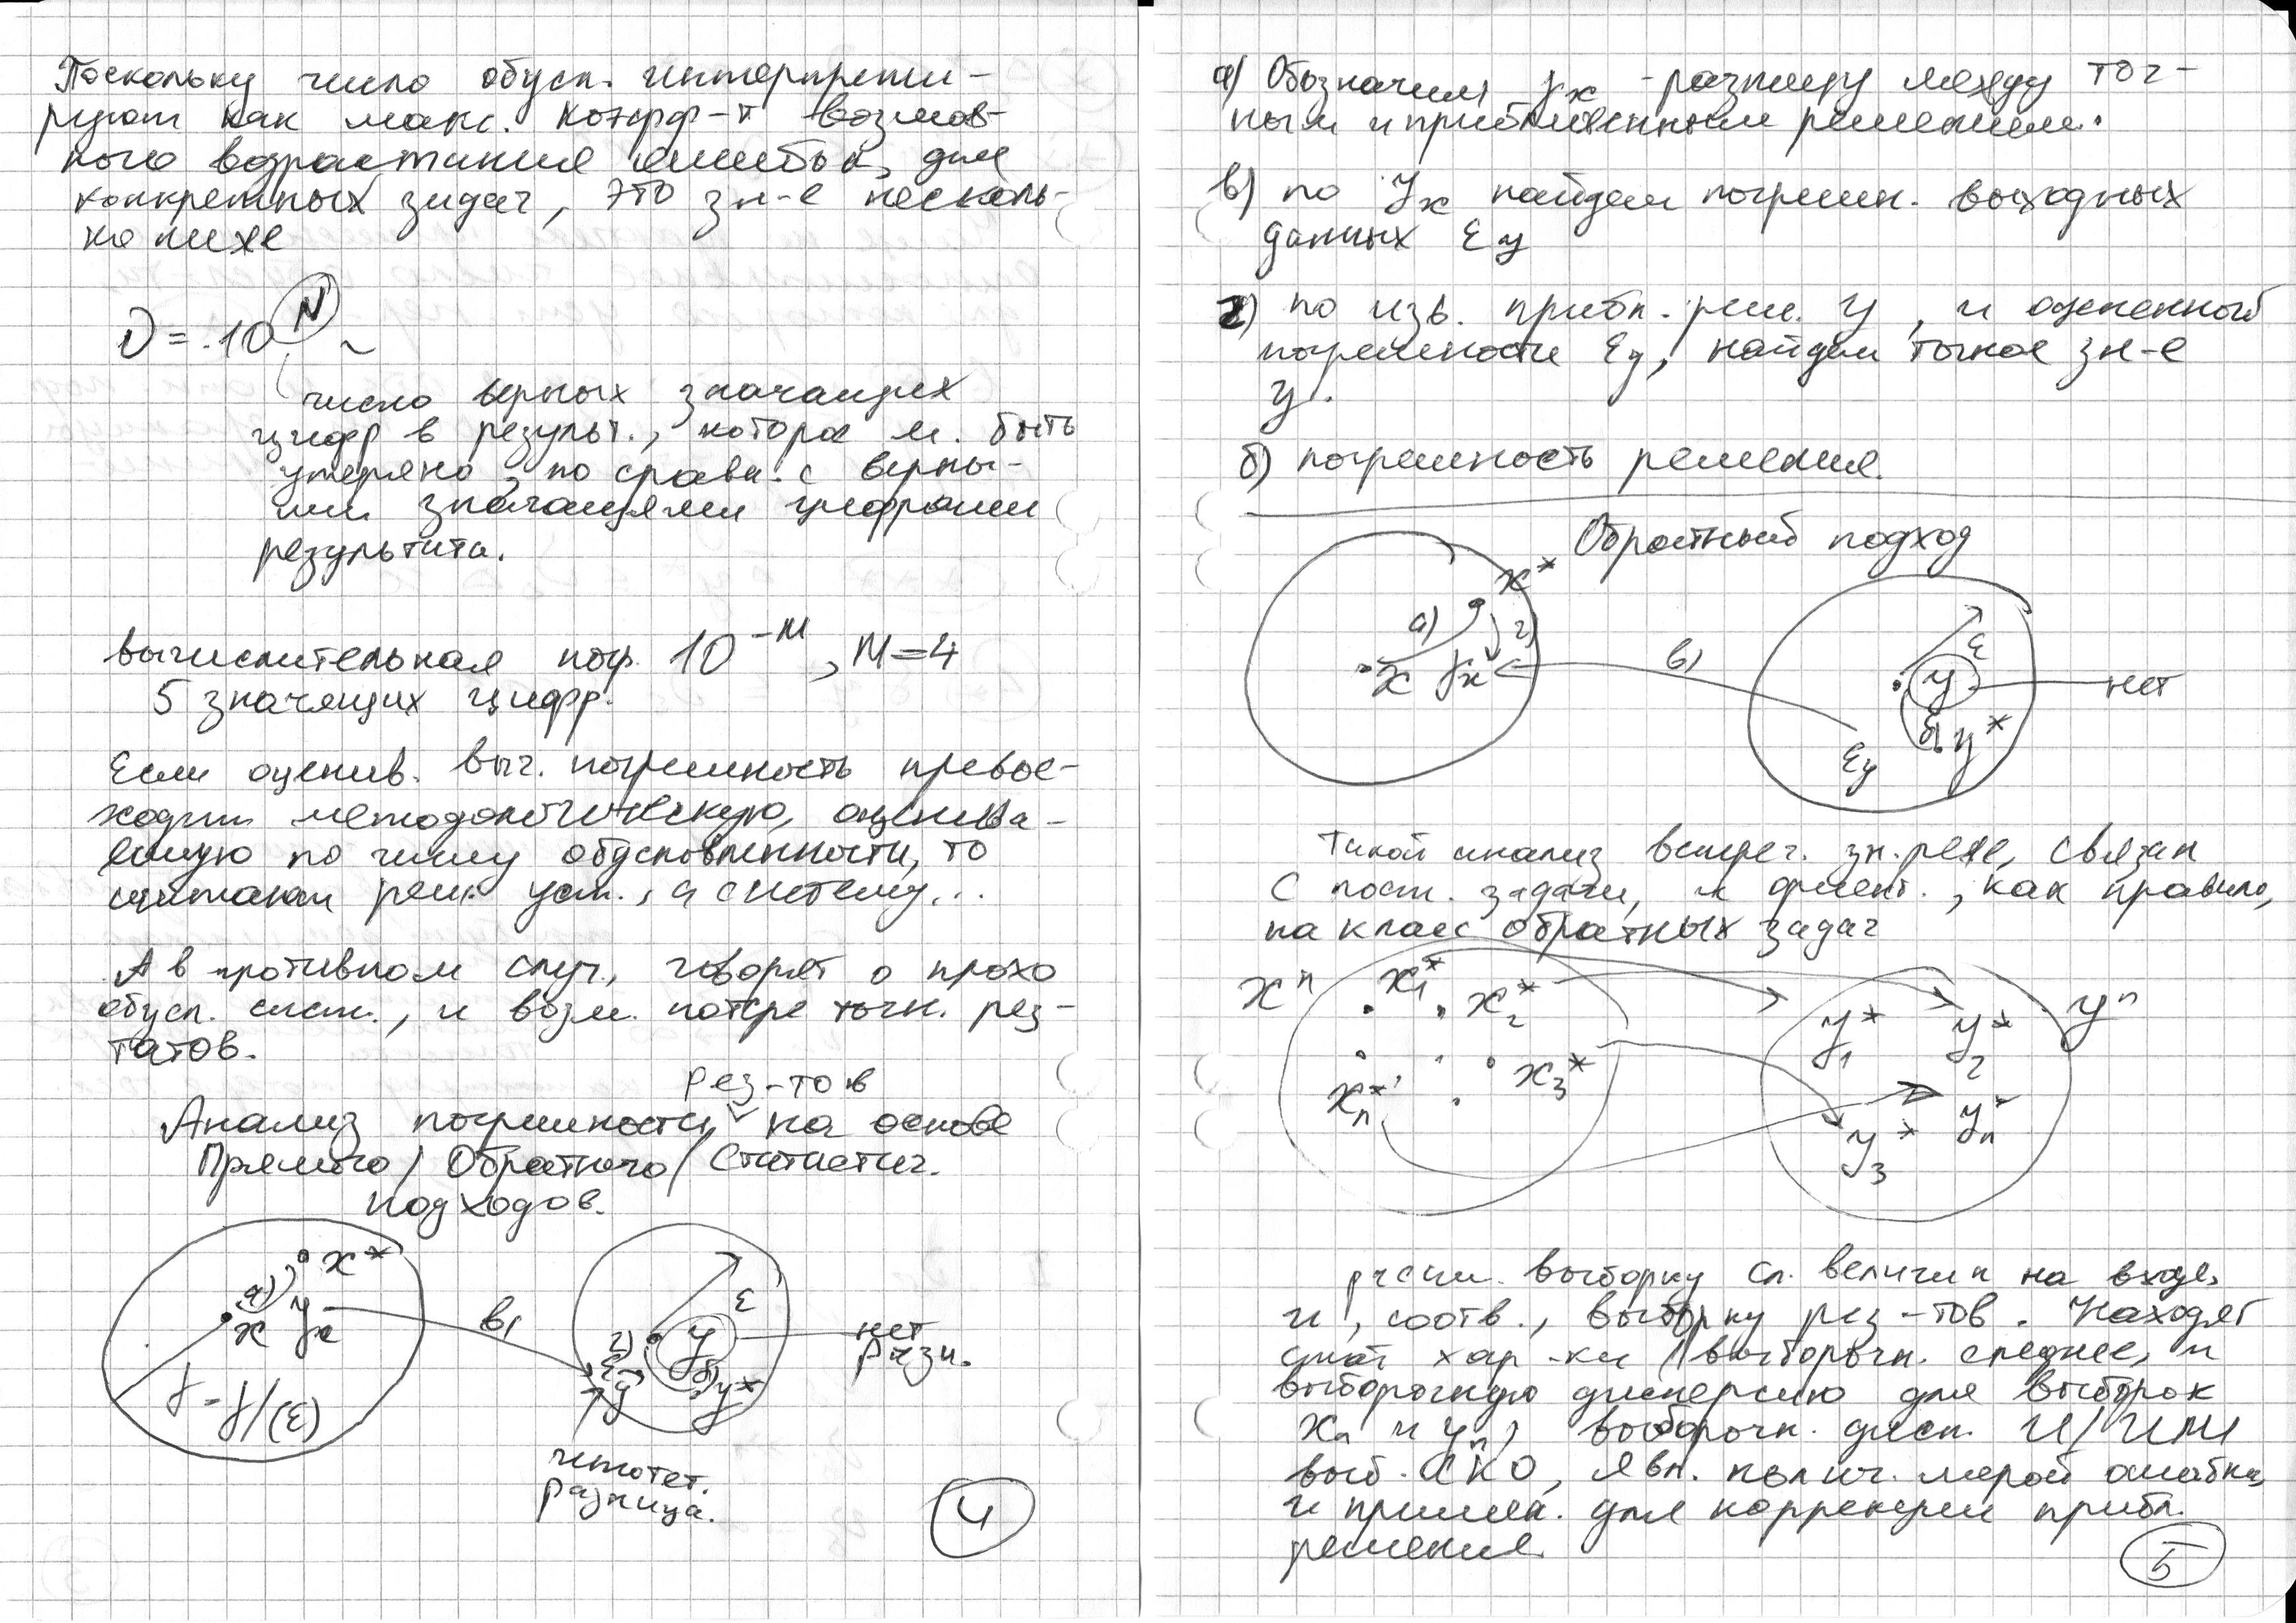 Поскольку число обусл. интерпрети-
руют как макс. коэфф-т возмож-
ного возрастания ошибки, для
конкретных задач, это зн-е несколь-
ко ниже
ν = .10^N ~
число верных значащих
цифр в результ., которое м. быть
утеряно, по сравн. с верны-
ми значащими цифрами
результата.
вычислительная погр. 10^-M, M=4
5 значащих цифр.
Если оценив. выч. погрешность превос-
ходит методологическую, оценива-
емую по числу обусловленности, то
считают реш. уст., а систему...
А в противном случ., говорят о плохо
обусл. сист., и возм. потере точн. рез-
татов.
рез-тов
Анализ погрешности на основе
Прямого / Обратного / Статистич.
подходов.
x*
а)
x
γx
γ = γ(ε)
в)
ε
г)
εy
y
б)
y*
нет
разн.
гипотет.
разница.
4
а) Обозначим γx - разницу между точ-
ным и приближенным решением.
в) по γx найдем погрешн. выходных
данных εy
г) по изв. прибл. реш. y, и оцененной
погрешности εy, найдем точное зн-е
y.
б) погрешность решения.
Обратный подход
x*
а)
г)
x
γx
в)
ε
y
нет
б)
y*
εy
Такой анализ встреч. зн. реже, связан
с пост. задачи, и ориент., как правило,
на класс обратных задач
x^n
x1*
x2*
x3*
xn*
y1*
y2*
y^n
yn*
y3*
рассм. выборку сл. величин на входе,
и, соотв., выборку рез-тов. Находят
стат хар-ки (выборочн. среднее, и
выборочную дисперсию для выборок
xn и yn) выборочн. дисп. И/ИЛИ
выб. СКО, явл. колич. мерой ошибки,
и примен. для коррекции прибл.
решения.
5